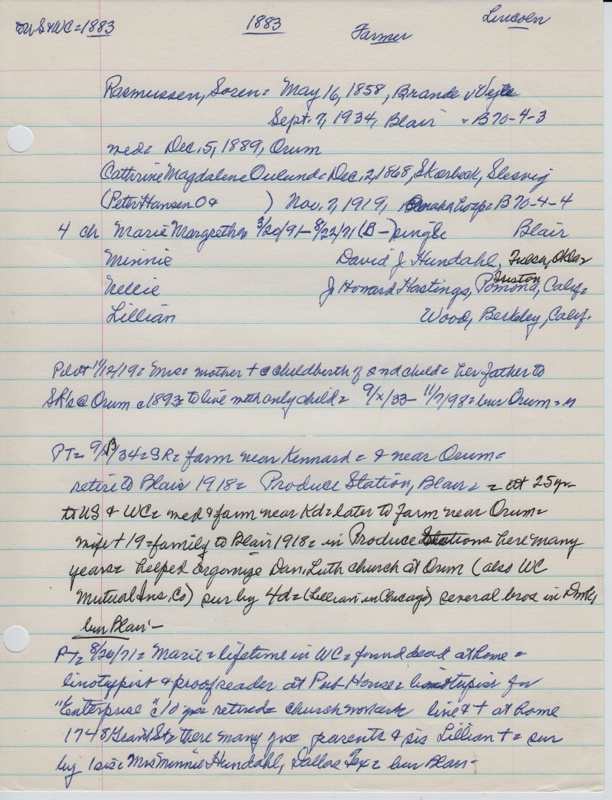 to US & WC = 1883 1883 Farmer Lincoln
Rasmussen, Soren = May 16, 1858, Brande, Vejle
Sept. 7, 1934, Blair = B70-4-3
med = Dec. 5, 1889, Orum
Catherine Magdalene Oulund = Dec. 2, 1868, Skærbæk, Slesvig
(Peter Hansen O & ) Nov. 7, 1919, B70-4-4
4 ch Marie Margrethe 3/20/91 - 8/22/71 (B-) single Blair
Minnie David J. Hundahl, Tulsa, Okla
Nellie J. Howard Hastings, Pomona, Calif.
Lillian Wood, Berkeley, Calif.
Pilot 11/12/19 = Mrs = mother + @ childbirth of 2nd child = her father to
SR's @ Orum c 1893 = to live with only child = - 11/7/98 = bur Orum =
PT = /34 = SR = farm near Kennard = & near Orum =
retire to Blair 1918 = Produce Station, Blair = = at 25 yr =
to US & WC = med & farm near Kd = later to farm near Orum =
wife + 19 = family to Blair 1918 = in Produce here many
years = helped organize Dan. Luth church at Orum (also WC
Mutual Ins. Co) sur by 4d = (Lillian in Chicago) several bros in Dmk,
bur Blair -
PT = 8/26/71 = Marie = lifetime in WC = found dead at home =
linotypist & proofreader at Pub House = linotypist for
"Enterprise" c 10 yrs retired = church work live & + at home
1748 Grant St = there many yrs parents & sis Lillian + = sur
by 1 sis = Mrs Minnie Hundahl, Dallas Tex = bur Blair -